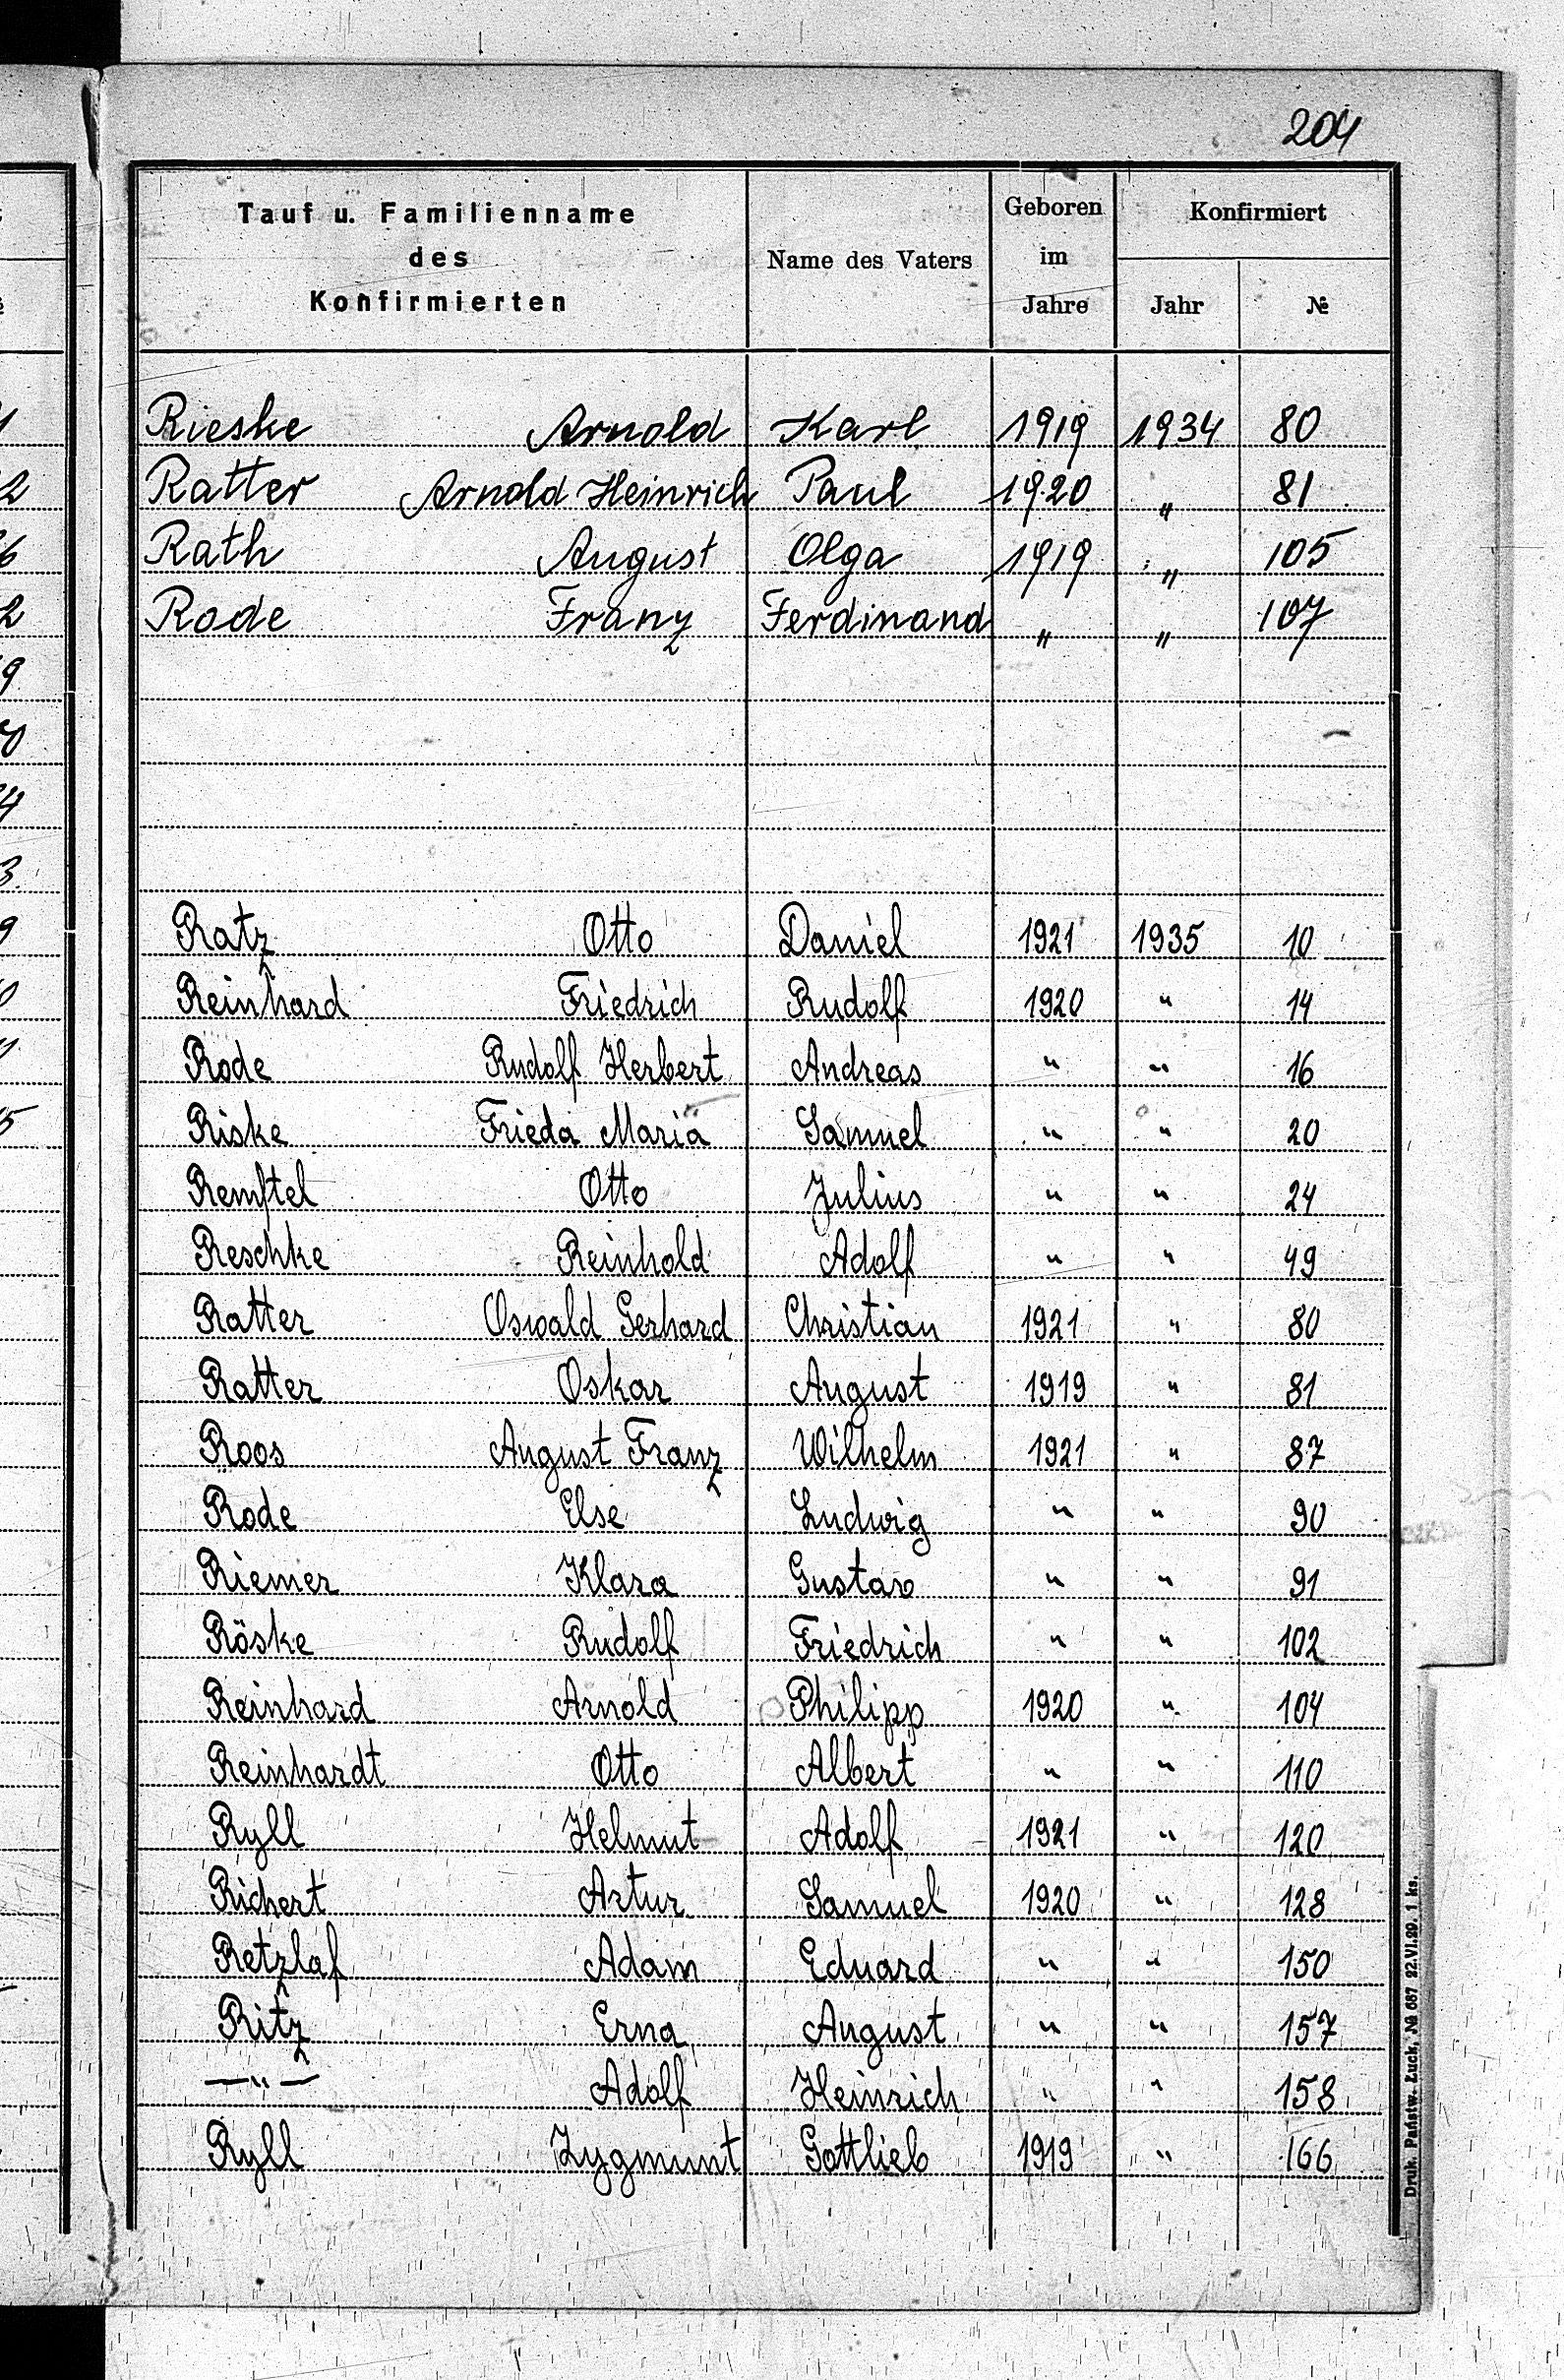 204
Tauf u. Familienname des Konfirmierten | Name des Vaters | Geboren im Jahre | Konfirmiert Jahr | №
Rieske Arnold Karl 1919 1934 80
Ratter Arnold Heinrich Paul 1920 " 81
Rath August Olga 1919 " 105
Rode Franz Ferdinand " " 107
Ratz Otto Daniel 1921 1935 10
Reinhard Friedrich Rudolf 1920 " 14
Rode Rudolf Herbert Andreas " " 16
Riske Frieda Maria Samuel " " 20
Remftel Otto Julius " " 24
Reschke Reinhold Adolf " " 49
Ratter Oswald Gerhard Christian 1921 " 80
Ratter Oskar August 1919 " 81
Roos August Franz Wilhelm 1921 " 87
Rode Else Ludwig " " 90
Riemer Klara Gustav " " 91
Röske Rudolf Friedrich " " 102
Reinhard Arnold Philipp 1920 " 104
Reinhardt Otto Albert " " 110
Ryll Helmut Adolf 1921 " 120
Richert Artur Samuel 1920 " 128
Retzlaf Adam Eduard " " 150
Ritz Erna August " " 157
—"— Adolf Heinrich " " 158
Ryll Zygmunt Gottlieb 1919 " 166
Druk. Państw. Łuck, № 687 22.VI.29. 1 ks.